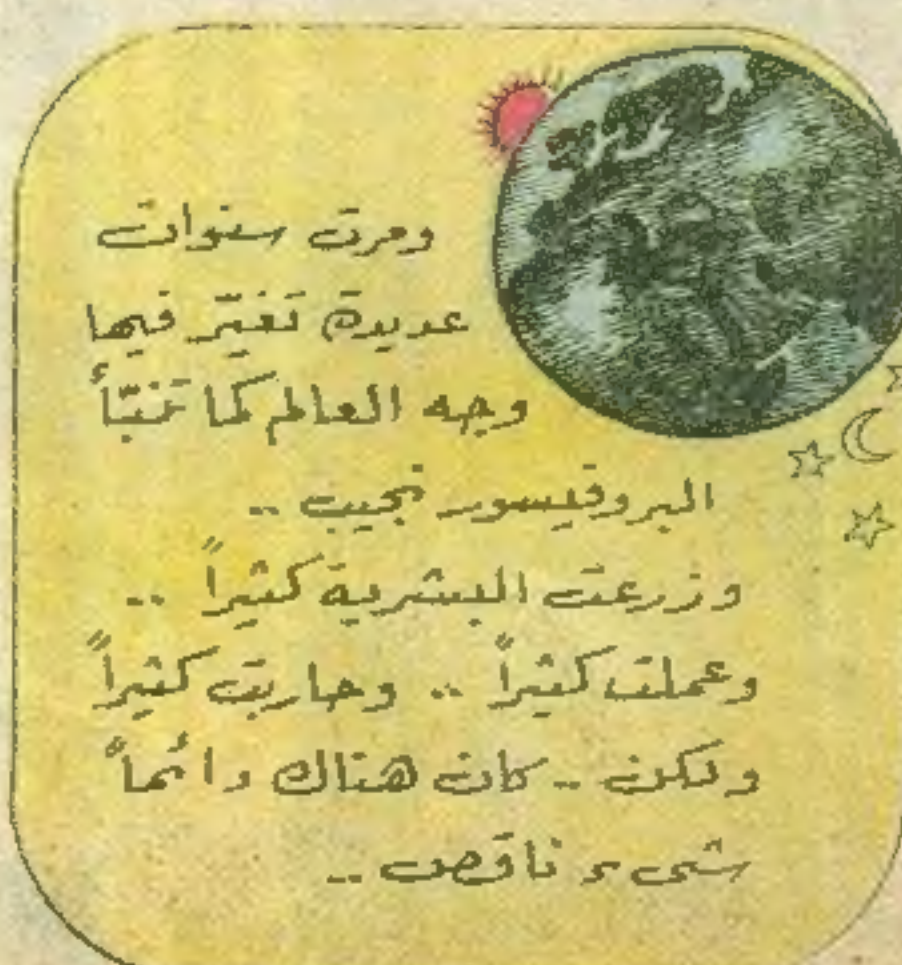 ومرت سنوات
عديدة تغيّر فيها
وجه العالم كما تنبّأ
البروفيسور نجيب ..
وزرعت البشرية كثيراً ..
وعملت كثيراً .. وحاربت كثيراً
ولكن .. كان هناك دائماً
شيء ناقص ..